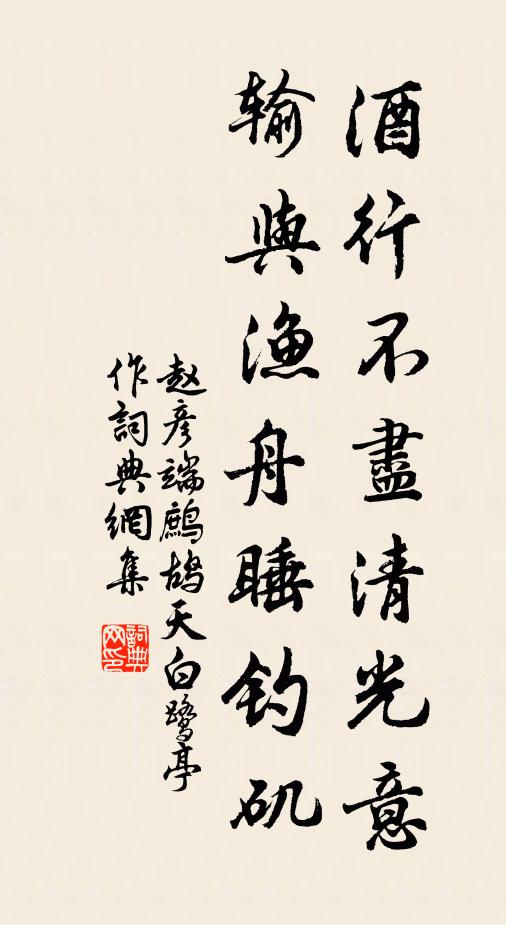 酒行不盡清光意
输與渔舟睡钓矶
赵彦端鹧鸪天白鹭亭
作詞典網集
詞典网印